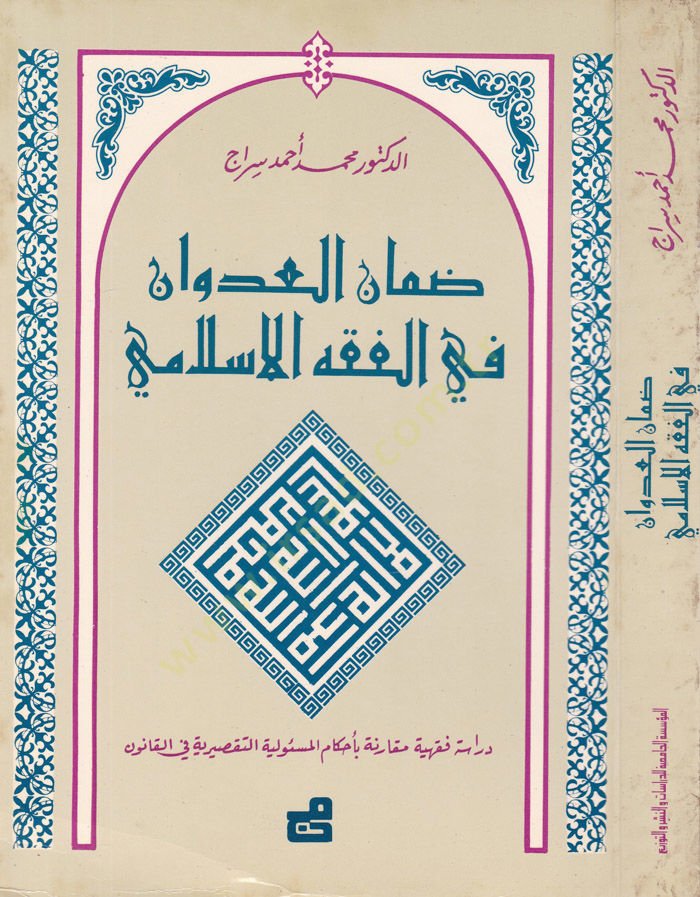 الدكتور محمد أحمد سراج
ضمان العدوان
في الفقه الإسلامي
دراسة فقهية مقارنة بأحكام المسئولية التقصيرية في القانون
الدكتور محمد أحمد سراج
ضمان العدوان
في الفقه الإسلامي
المؤسسة الجامعية للدراسات والنشر والتوزيع